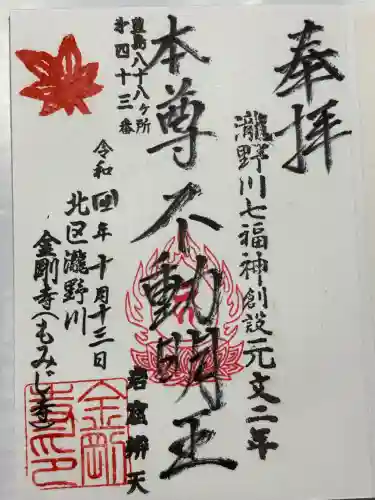 奉拝
瀧野川七福神創設元文二年
本尊不動明王
岩屋辨天
豊島八十八ヶ所
第四十三番
令和四年十月十三日
北区瀧野川
金剛寺(もみじ寺)
金剛
寺印